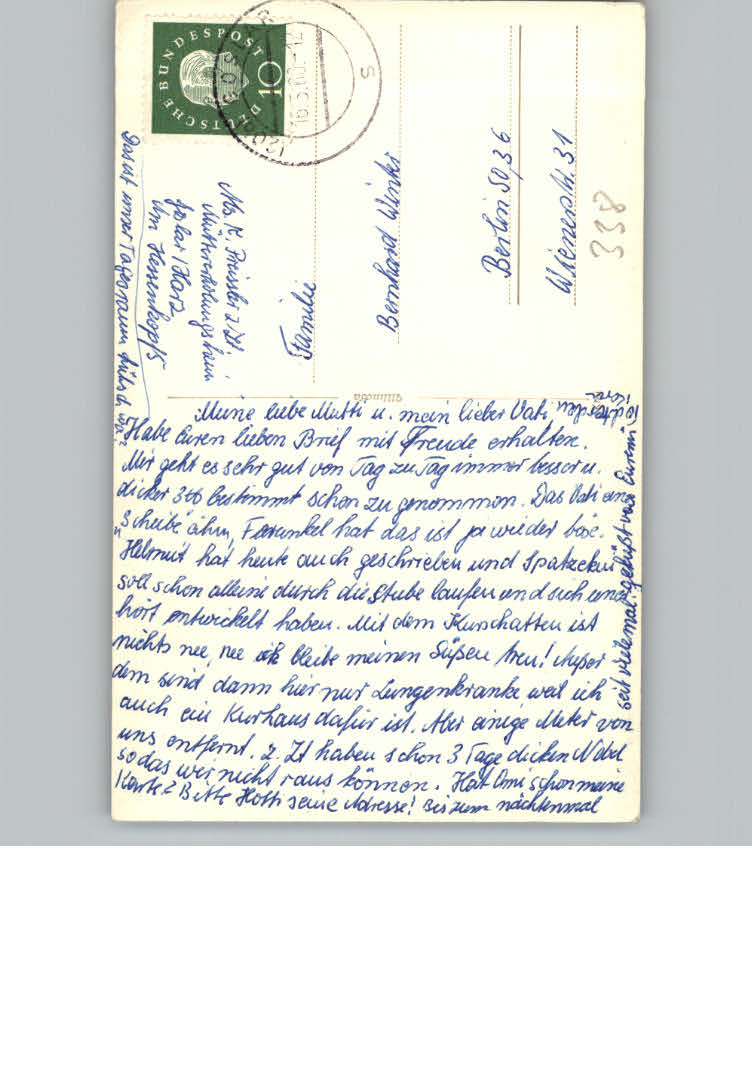 DEUTSCHE BUNDESPOST
10
16.3.60.-12
S
Das ist unser Tagesraum hübsch wa!
Abs. K. Preissler z. Zt.
Müttererholungsheim
Goslar / Harz
Am Hessenkopf
Familie
Bernhard Winks
Berlin SO 36
Wienerstr. 31
338
Meine liebe Mutti u. mein lieber Vati,
Habe Euren lieben Brief mit Freude erhalten.
Mir geht es sehr gut von Tag zu Tag immer besser u.
dicker 3 ℔ bestimmt schon zu genommen. Das Vati eine
"Scheibe" ähm, Forunkel hat das ist ja wieder böse.
Helmut hat heute auch geschrieben und Spatzeken
soll schon alleine durch die Stube laufen und sich uner
hört entwickelt haben. Mit dem Kurschatten ist
nichts nee, nee ick bleibe meinen Süßen treu! Außer
dem sind dann hier nur Lungenkranke weil ich
auch ein Kurhaus dafür ist. Aber einige Meter von
uns entfernt. z. Zt haben schon 3 Tage dicken Nebel
sodas wir nicht raus können. Hat Omi schon meine
Karte? Bitte Hotti seine Adresse! Bis zum nächtenmal
seit vielemal geküßt von Eurem